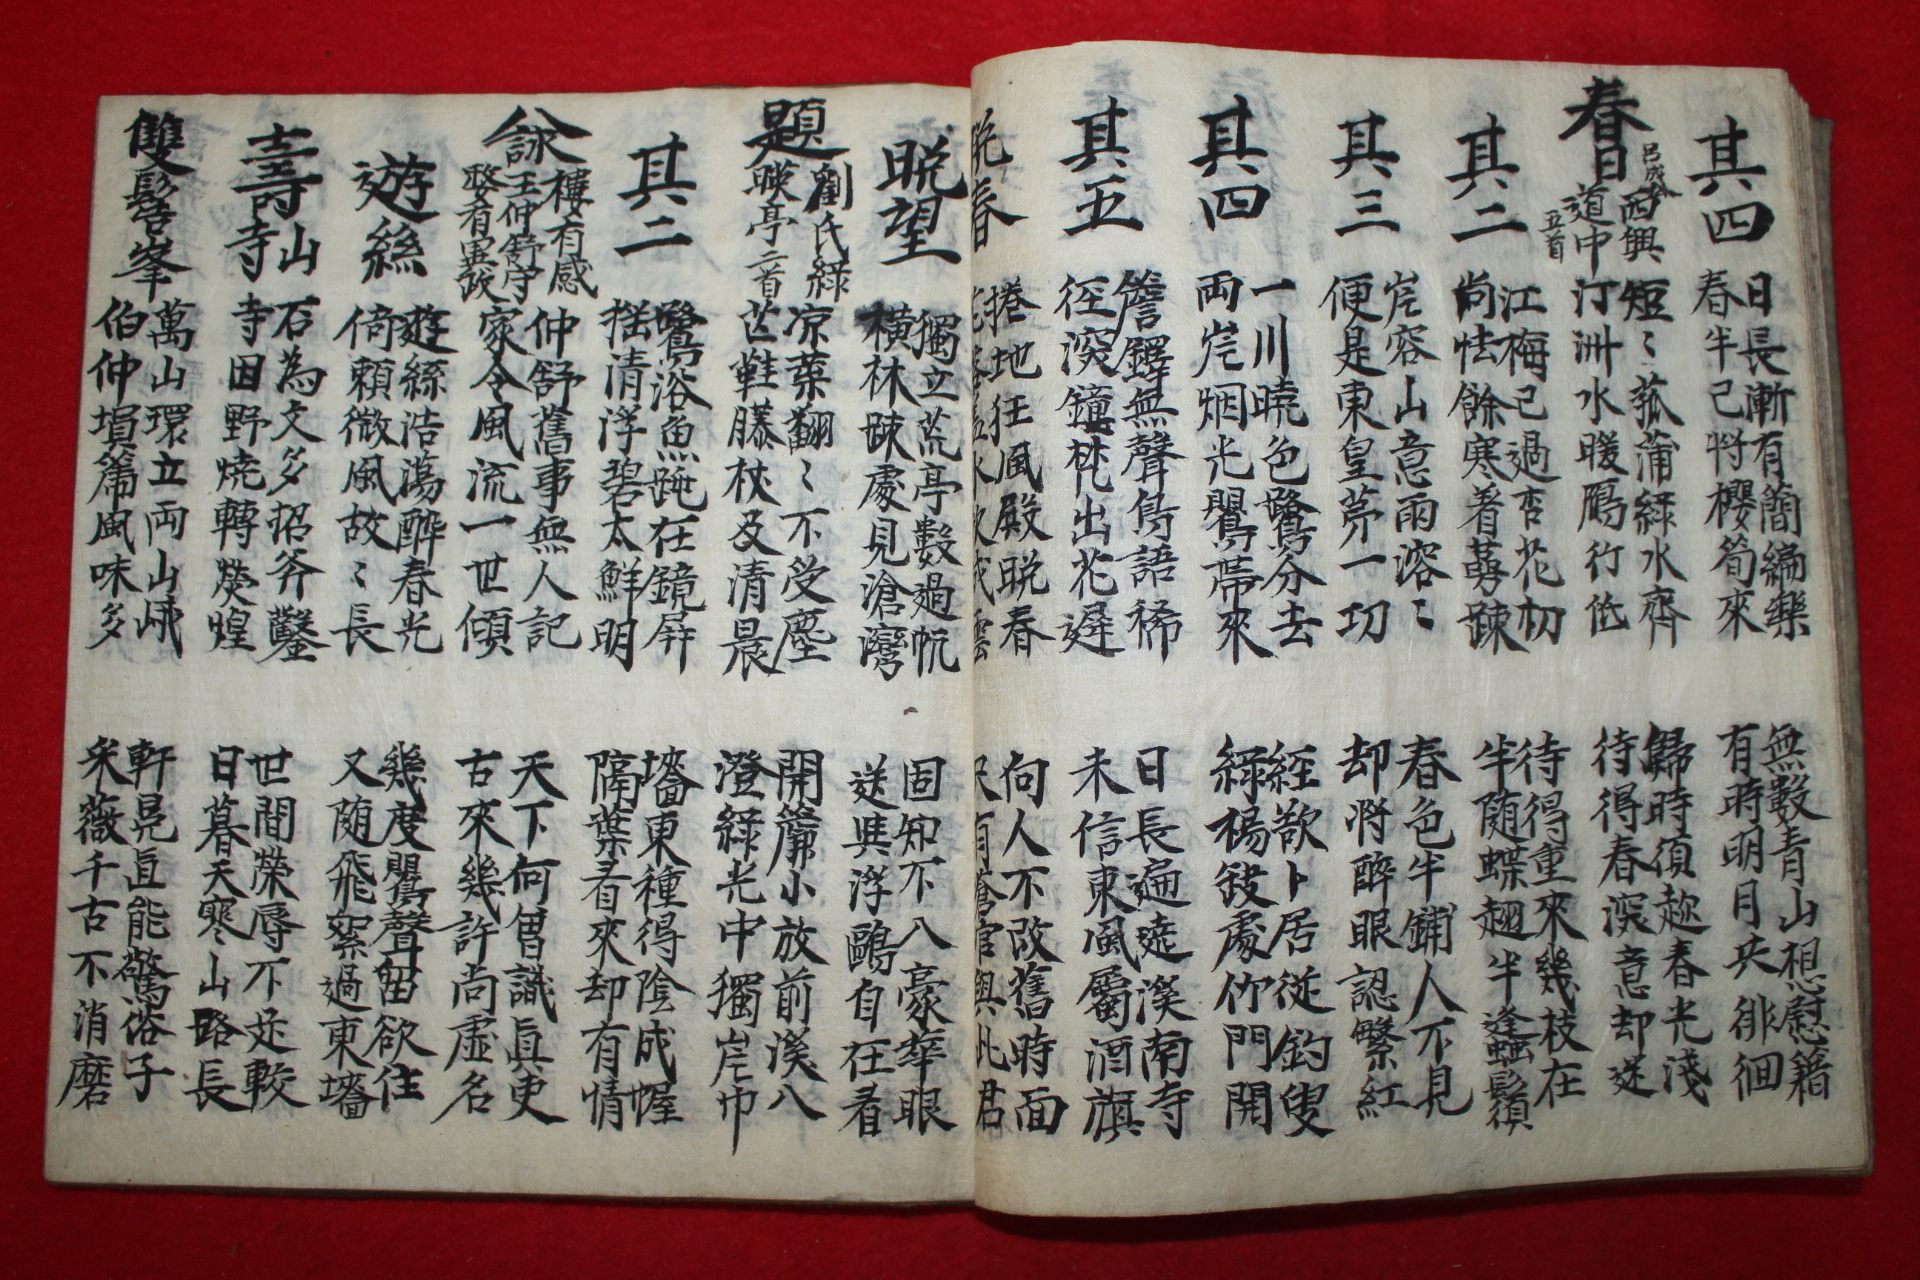 其四
日長漸有簡編樂
春半已將櫻筍來
無數青山想慰籍
有時明日共徘徊
春日
西興
道中
五首
短〻菰蒲綠水齊
汀洲水暖鴈行低
歸時須趁春光淺
待得春深意却迷
其二
江梅已過杏花初
尚怯餘寒着萼踈
待得重來幾枝在
半隨蝶翅半蜂鬚
其三
岸容山意雨溶〻
便是東皇第一功
春色半鋪人不見
却將醉眼認繁紅
其四
一川曉色鷺分去
両岸烟光鸎帶來
経欲卜居従釣叟
綠楊缺處竹門開
其五
簷鐸無聲鳥語稀
徑深鐘梵出花遲
日長遍遶溪南寺
未信東風屬酒旗
晩春
捲地狂風殿晩春
向人不改舊時面
晩望
獨立荒亭數過帆
橫林踈處見滄灣
固知不入豪華眼
送與浮鷗自在看
題
劉氏綠
暎亭二首
凉葉翻〻不受塵
芒鞋藤杖及清晨
開簾小放前溪入
澄綠光中獨岸巾
其二
鷺浴魚跳在鏡屏
揺清浮碧太鮮明
墻東種得陰成幄
隔葉看來却有情
詠
樓有感
王仲舒序
仲舒舊事無人記
家令風流一世傾
天下何曾識眞吏
古來幾許尚虛名
遊絲
遊絲浩蕩酔春光
倚頼微風故〻長
幾度鸎聲留欲住
又随飛絮過東墻
壽山
寺
石為文多招斧鑿
寺因野燒轉熒煌
世間榮辱不足較
日暮天寒山路長
雙髻峯
萬山環立両山峩
伯仲塤篪風味多
軒冕豈能驚俗子
采薇千古不消磨